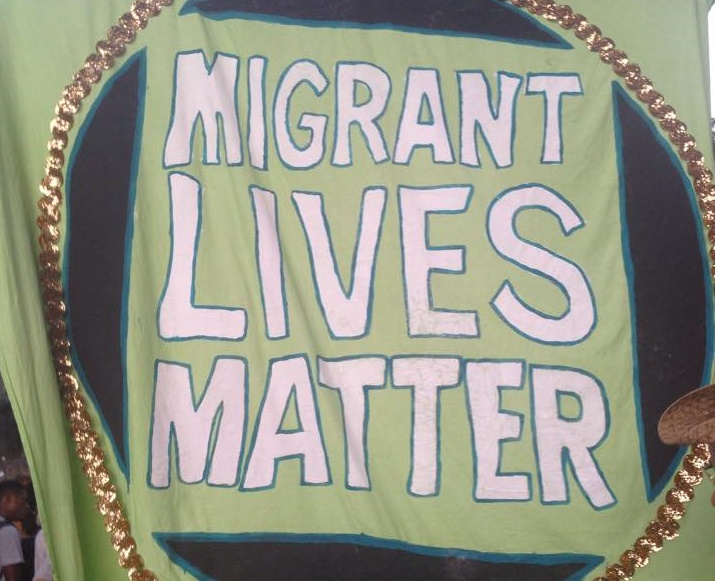 MIGRANT
LIVES
MATTER